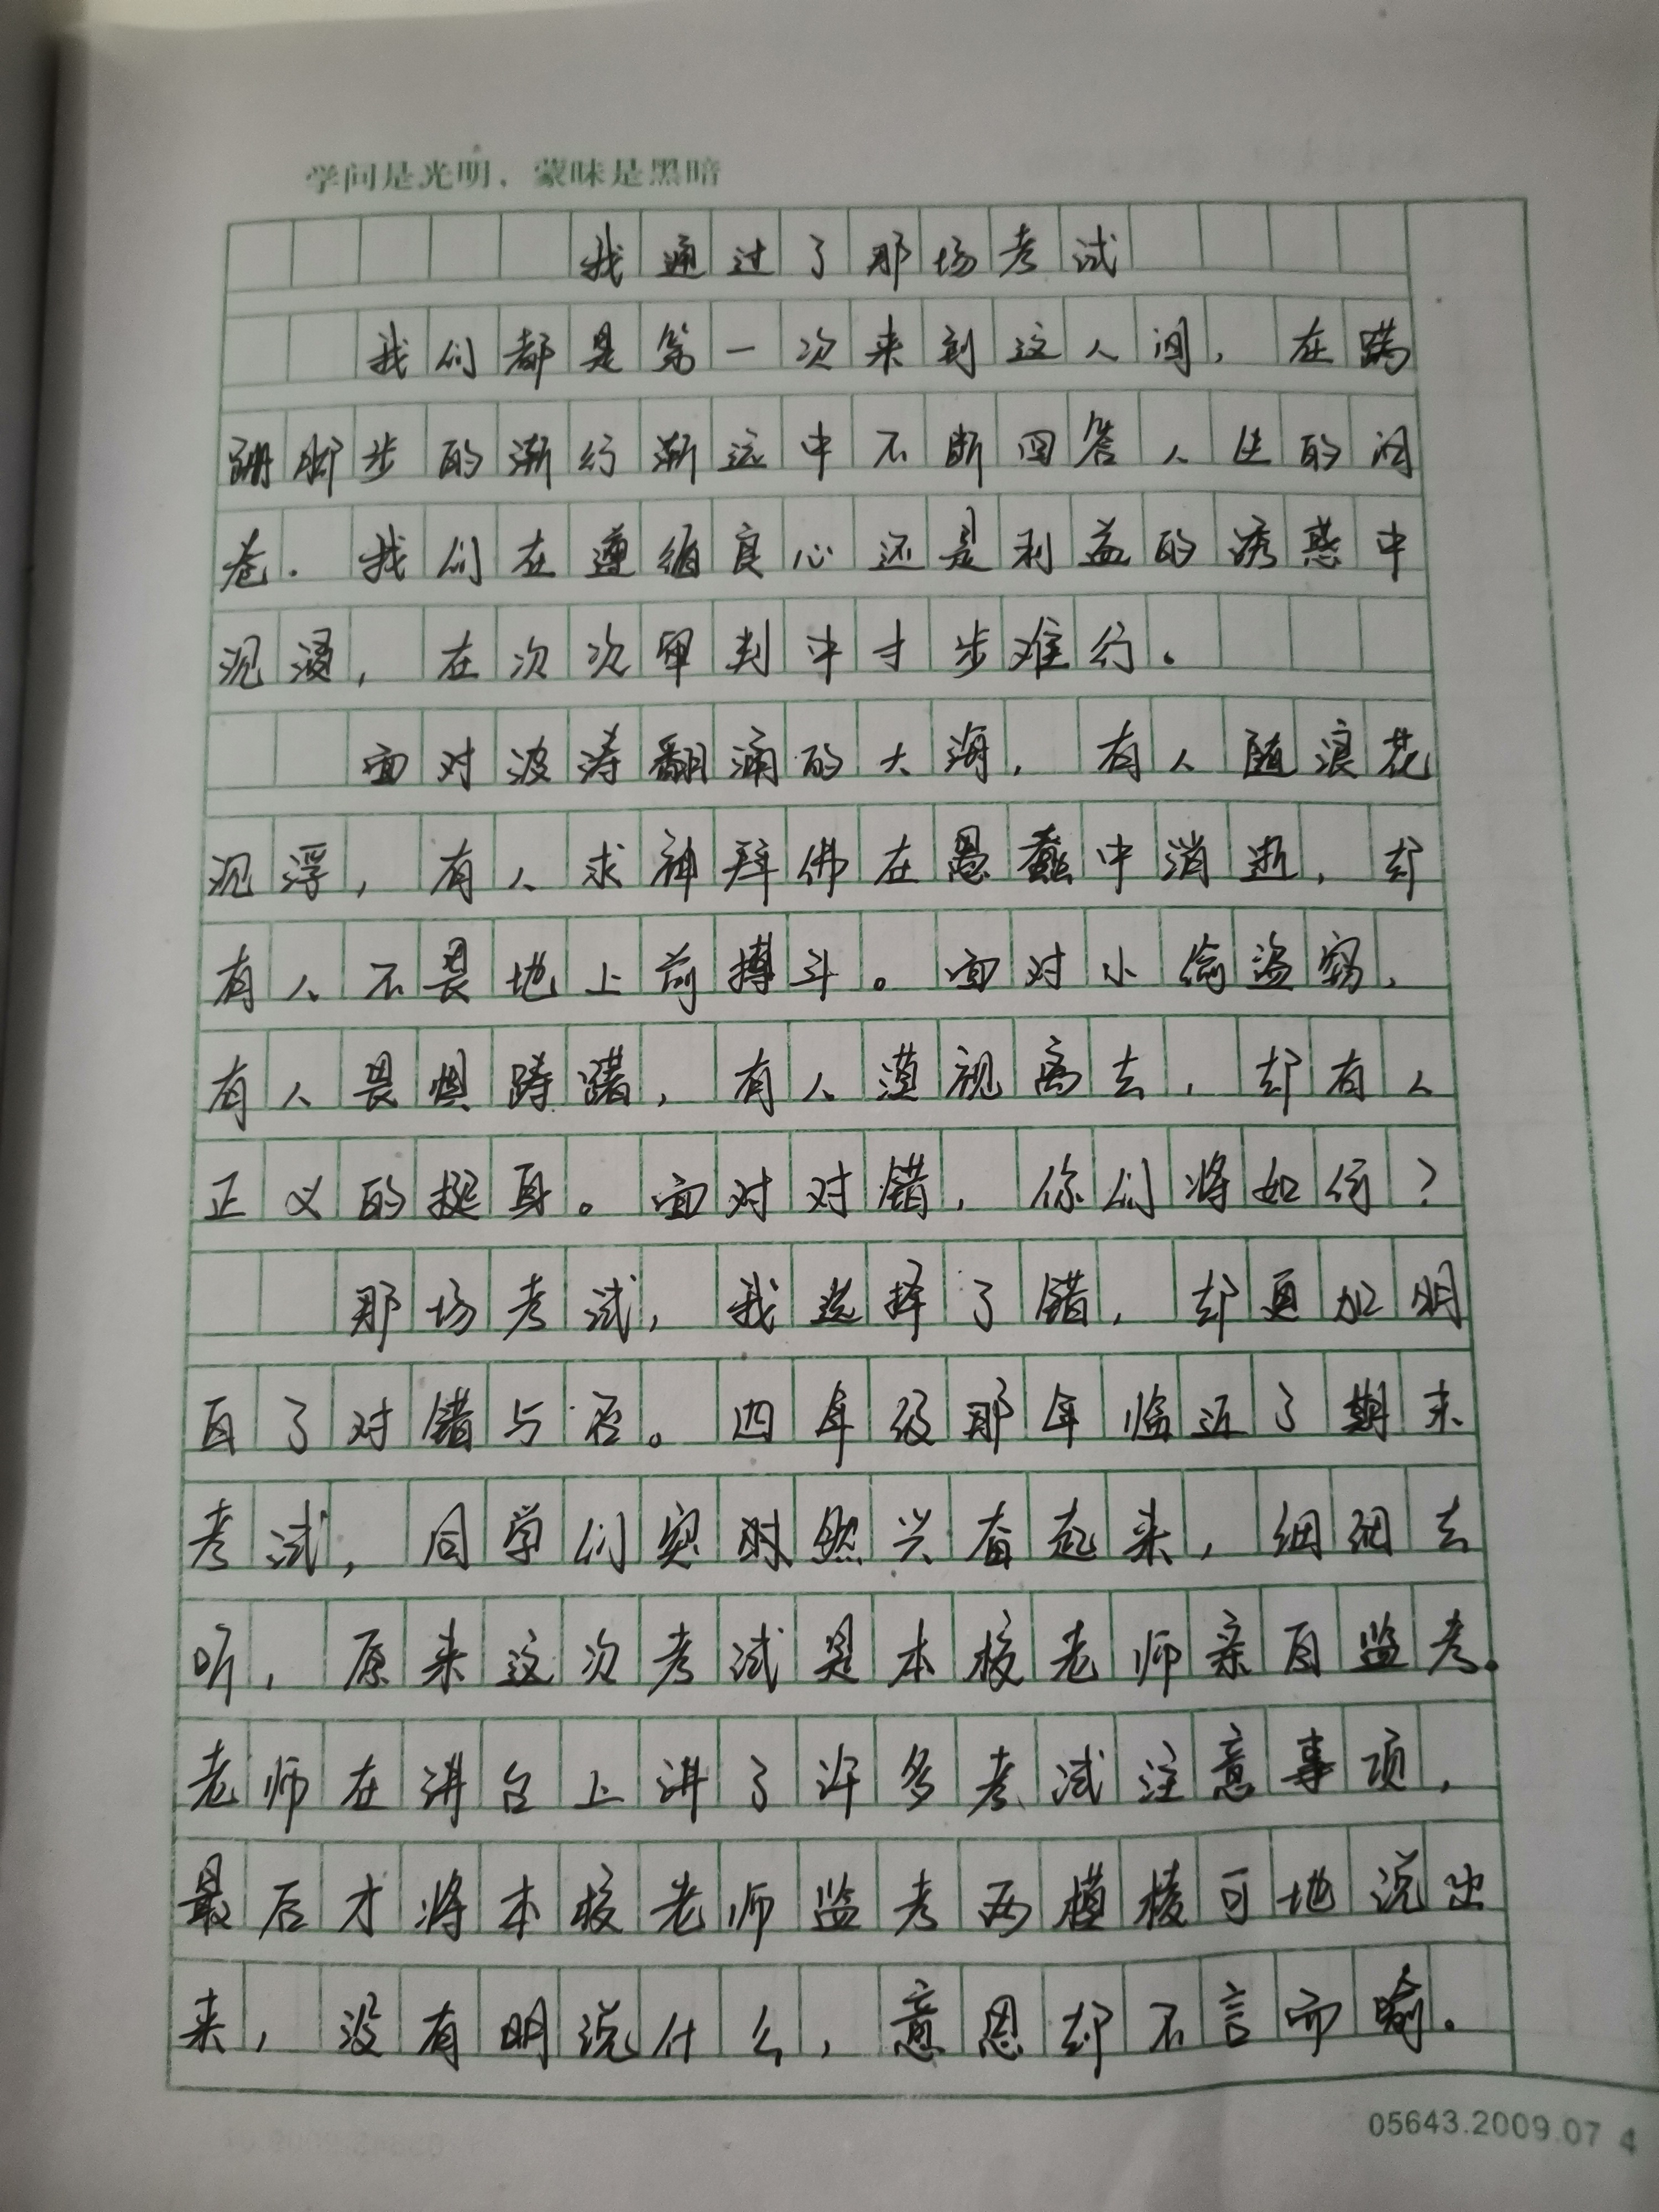 学问是光明，蒙昧是黑暗
我通过了那场考试
我们都是第一次来到这人间，在蹒
跚脚步的渐行渐远中不断回答人生的问
卷.我们在遵循良心还是利益的诱惑中
沉浸，在次次审判中寸步难行。
面对波涛翻涌的大海，有人随浪花
沉浮，有人求神拜佛在愚蠢中消逝，却
有人不畏地上前搏斗。面对小偷盗窃，
有人畏惧踌躇，有人漠视离去，却有人
正义的挺身。面对对错，你们将如何？
那场考试，我选择了错，却更加明
白了对错与否。四年级那年临近了期末
考试，同学们突然兴奋起来，细细去
听，原来这次考试是本校老师亲自监考。
老师在讲台上讲了许多考试注意事项，
最后才将本校老师监考两模棱可地说出
来，没有明说什么，意思却不言而喻。
05643.2009.07 4